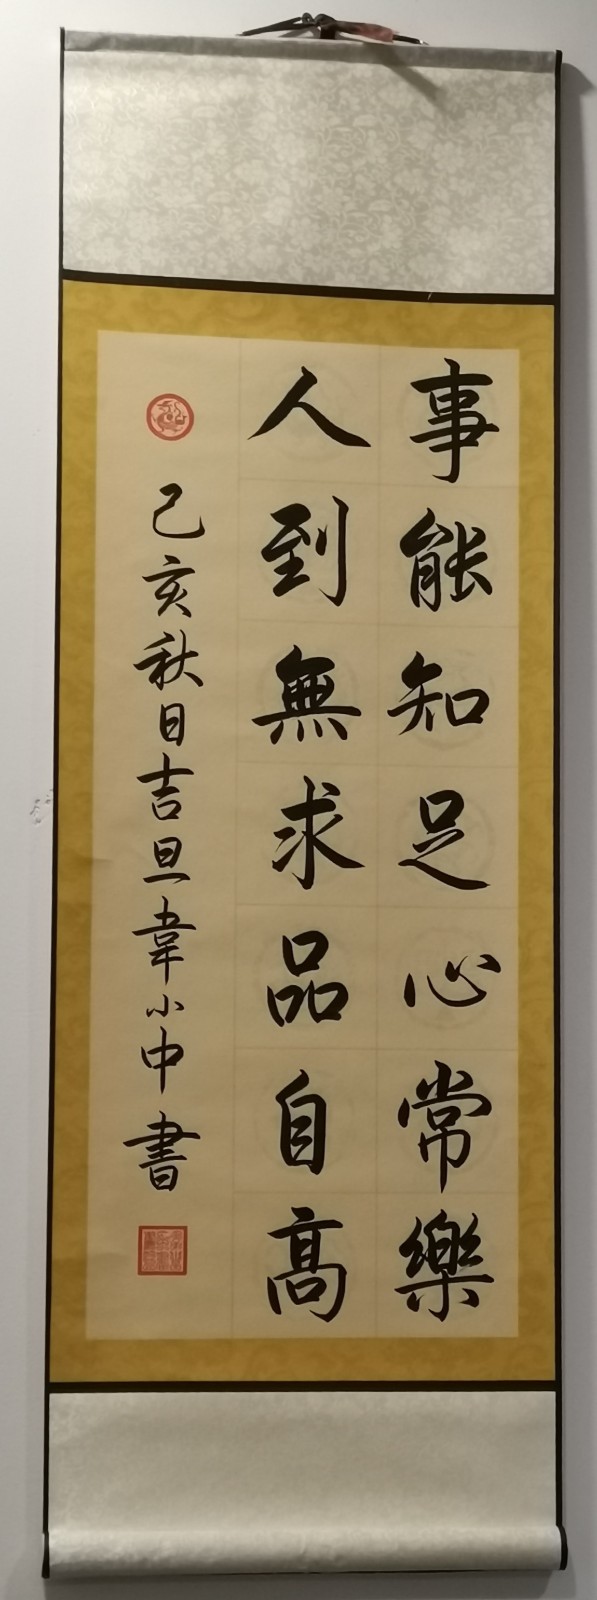 事能知足心常樂
人到無求品自高
己亥秋日吉旦韋小中書